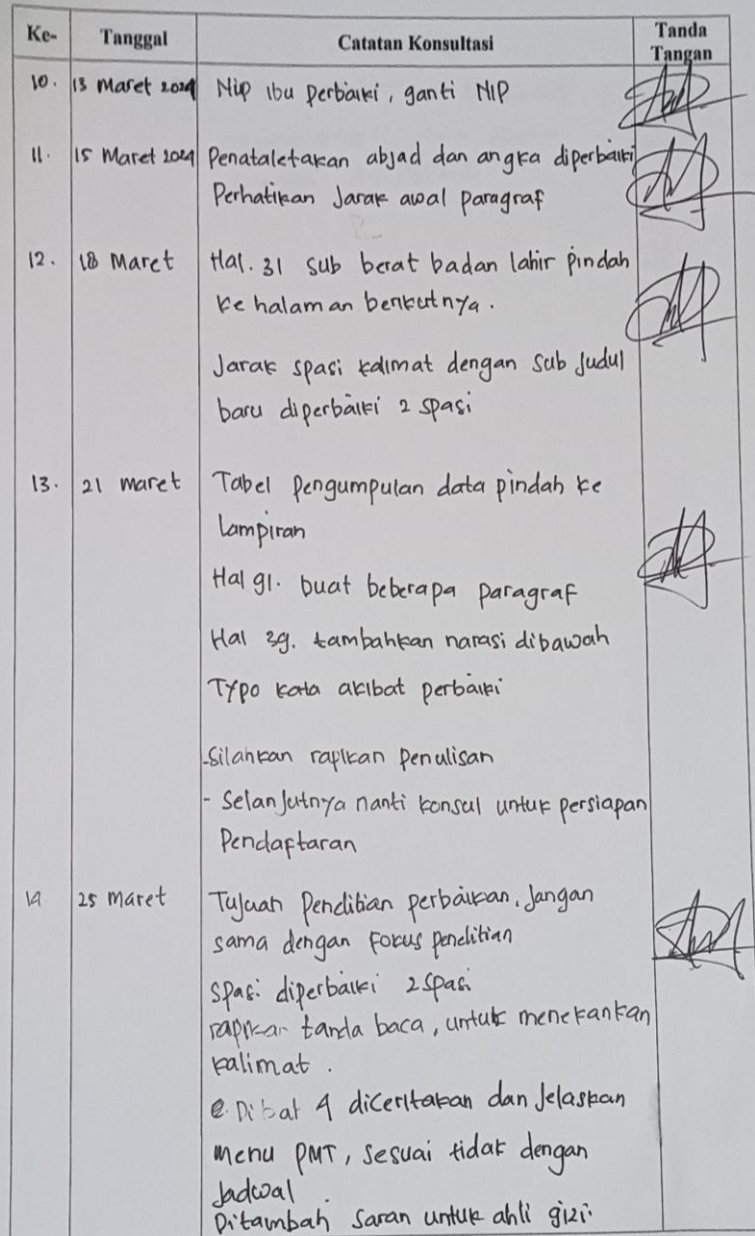 Ke- Tanggal Catatan Konsultasi Tanda Tangan
10. 13 Maret 2024 Nip ibu perbaiki, ganti NIP
11. 15 Maret 2024 Penataletakan abjad dan angka diperbaiki
Perhatikan Jarak awal paragraf
12. 18 Maret Hal. 31 sub berat badan lahir pindah
ke halaman berikutnya.
Jarak spasi kalimat dengan sub judul
baru diperbaiki 2 spasi
13. 21 maret Tabel pengumpulan data pindah ke
lampiran
Hal 91. buat beberapa paragraf
Hal 39. tambahkan narasi dibawah
Typo kata akibat perbaiki
-Silahkan rapikan penulisan
- Selanjutnya nanti konsul untuk persiapan
Pendaftaran
14 25 maret Tujuan Penelitian perbaikan, Jangan
sama dengan Fokus penelitian
spasi diperbaiki 2 spasi
rapikan tanda baca, untuk menekankan
kalimat.
Dibab 4 diceritakan dan Jelaskan
menu PMT, sesuai tidak dengan
Jadwal
Ditambah saran untuk ahli gizi.